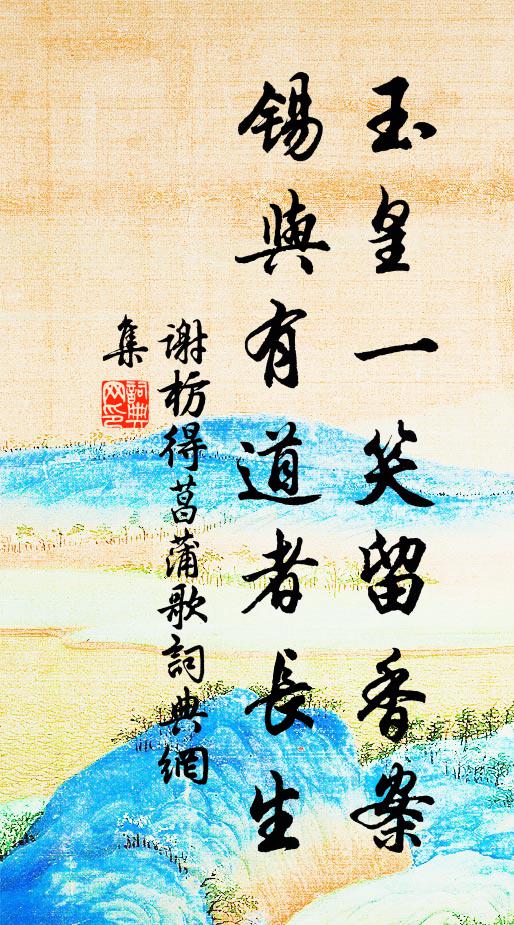 玉皇一笑留香案
錫與有道者長生
谢枋得菖蒲歌詞典網
集
詞典网印